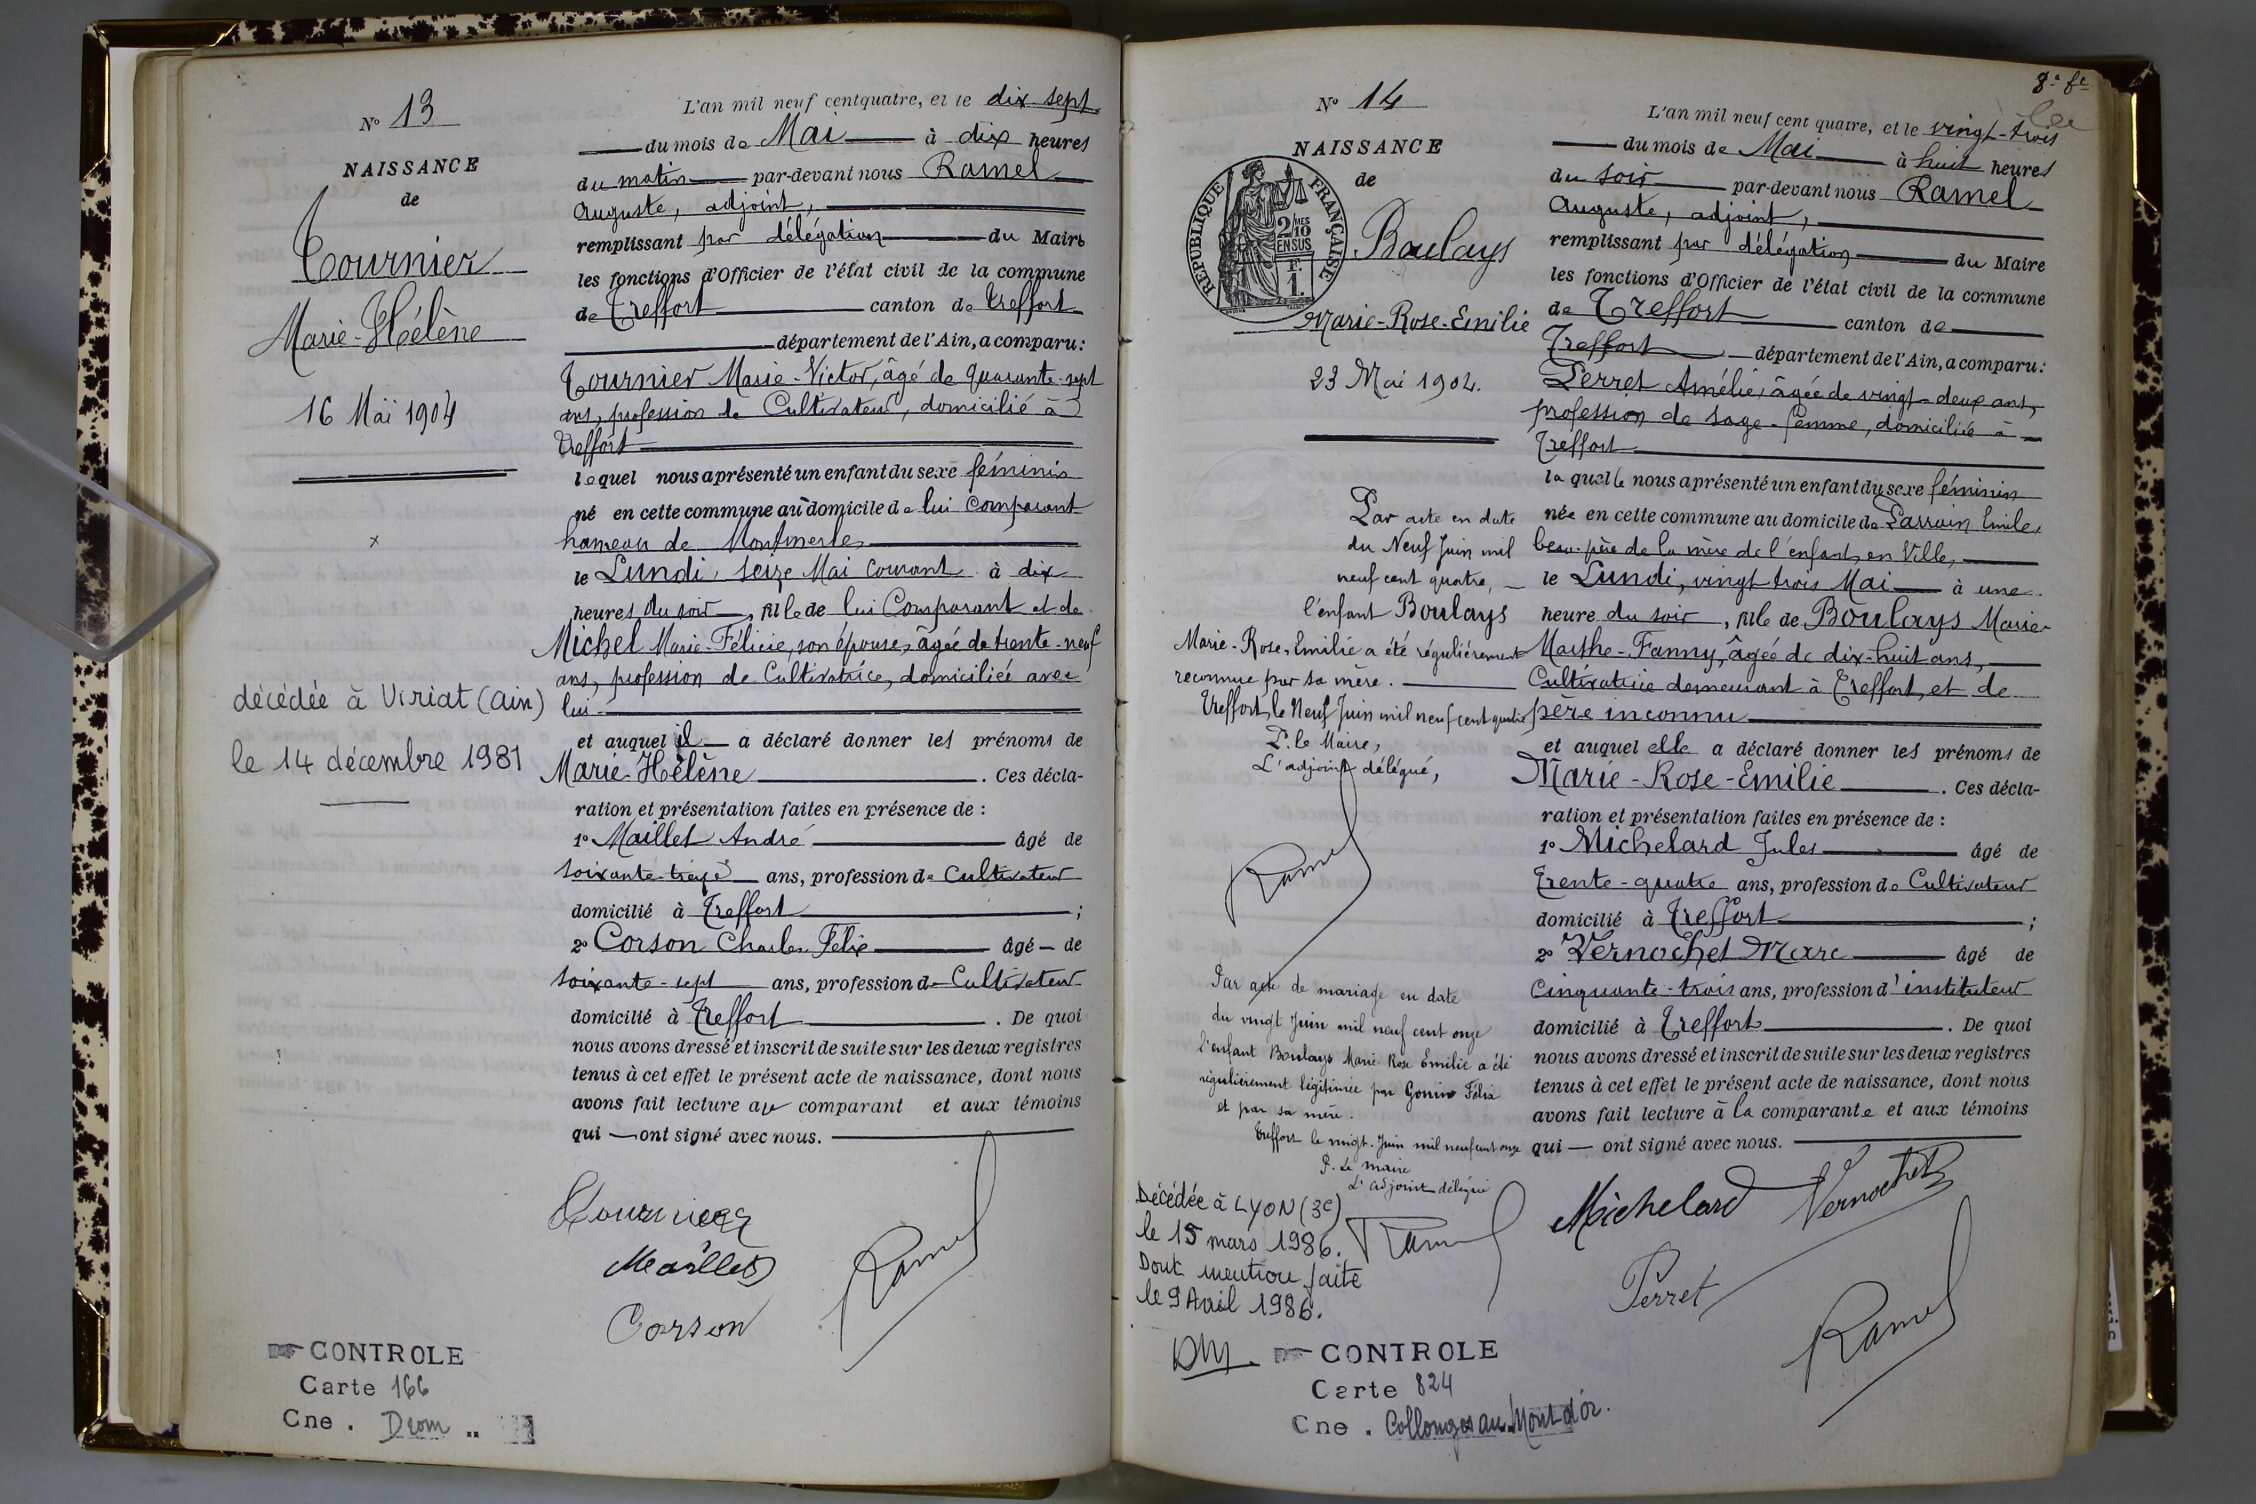 Nº 13
NAISSANCE
de
Tournier
Marie-Hélène
16 Mai 1904
x
décédée à Viriat (Ain)
le 14 décembre 1981
CONTROLE
Carte 166
Cne . Drom
L'an mil neuf cent quatre, et le dix-sept
du mois de Mai à dix heures
du matin par-devant nous Ramel
Auguste, adjoint,
remplissant par délégation du Maire
les fonctions d'Officier de l'état civil de la commune
de Treffort canton de Treffort
département de l'Ain, a comparu :
Tournier Marie-Victor, âgé de quarante-sept
ans, profession de Cultivateur, domicilié à
Treffort
lequel nous a présenté un enfant du sexe féminin
né en cette commune au domicile de lui comparant
hameau de Montmerle
le Lundi, seize Mai courant à dix
heures du soir, fille de lui Comparant et de
Michel Marie-Félicie, son épouse, âgée de trente-neuf
ans, profession de Cultivatrice, domiciliée avec
lui
et auquel il a déclaré donner les prénoms de
Marie-Hélène . Ces décla-
ration et présentation faites en présence de :
1º Maillet André âgé de
soixante-treize ans, profession de Cultivateur
domicilié à Treffort ;
2º Corson Charles Félix âgé de
soixante-sept ans, profession de Cultivateur
domicilié à Treffort . De quoi
nous avons dressé et inscrit de suite sur les deux registres
tenus à cet effet le présent acte de naissance, dont nous
avons fait lecture au comparant et aux témoins
qui ont signé avec nous.
Tournier
Maillet
Ramel
Corson
8e ft
Nº 14
NAISSANCE
de
REPUBLIQUE FRANÇAISE
2/10 MES
EN SUS
F.
1.
Boulays
Marie-Rose-Emilie
23 Mai 1904.
Par acte en date
du Neuf Juin mil
neuf cent quatre,
l'enfant Boulays
Marie-Rose-Emilie a été régulièrement
reconnue par sa mère.
Treffort, le Neuf Juin mil neuf cent quatre
P. le Maire,
L'adjoint délégué,
Ramel
Par acte de mariage en date
du vingt Juin mil neuf cent onze
l'enfant Boulays Marie Rose Emilie a été
régulièrement légitimée par Gonin Félix
et par sa mère.
Treffort le vingt Juin mil neuf cent onze
P. Le maire
L'adjoint délégué
Ramel
Décédée à LYON (3e)
le 15 mars 1986.
Dont mention faite
le 9 Avril 1986.
CONTROLE
Carte 824
Cne . Collonges au Mont d'or.
L'an mil neuf cent quatre, et le vingt-trois
du mois de Mai à huit heures
du soir par-devant nous Ramel
Auguste, adjoint,
remplissant par délégation du Maire
les fonctions d'Officier de l'état civil de la commune
de Treffort canton de
Treffort département de l'Ain, a comparu :
Perret Amélie, âgée de vingt-deux ans,
profession de sage-femme, domiciliée à
Treffort
laquelle nous a présenté un enfant du sexe féminin
née en cette commune au domicile de Parrain Emile,
beau-père de la mère de l'enfant, en Ville,
le Lundi, vingt trois Mai à une
heure du soir, fille de Boulays Marie-
Marthe-Fanny, âgée de dix-huit ans,
Cultivatrice demeurant à Treffort, et de
père inconnu
et auquel elle a déclaré donner les prénoms de
Marie-Rose-Emilie . Ces décla-
ration et présentation faites en présence de :
1º Michelard Jules âgé de
Trente-quatre ans, profession de Cultivateur
domicilié à Treffort ;
2º Vernochet Marc âgé de
Cinquante-trois ans, profession d'instituteur
domicilié à Treffort . De quoi
nous avons dressé et inscrit de suite sur les deux registres
tenus à cet effet le présent acte de naissance, dont nous
avons fait lecture à la comparante et aux témoins
qui ont signé avec nous.
Michelard Vernochet
Perret
Ramel